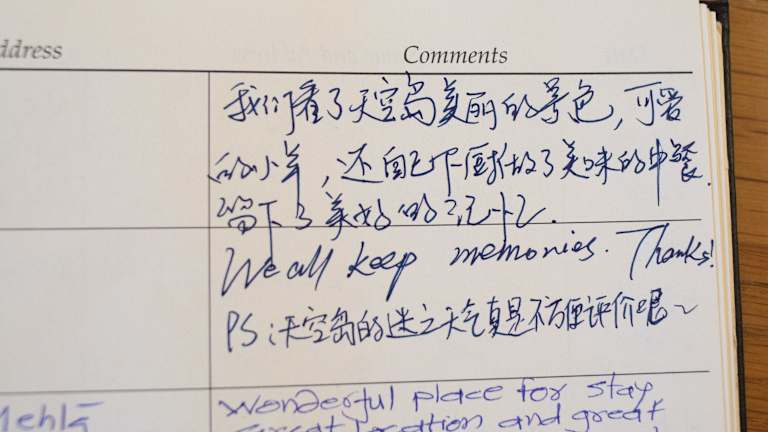 ddress
Comments
我们看了天空岛美丽的景色，可爱
的小羊，还自己下厨做了美味的中餐.
留下了美好的记忆.
We all keep memories. Thanks!
PS:天空岛的迷之天气真是不方便评价呢~
Mehlā
Wonderful place for stay
great location and great